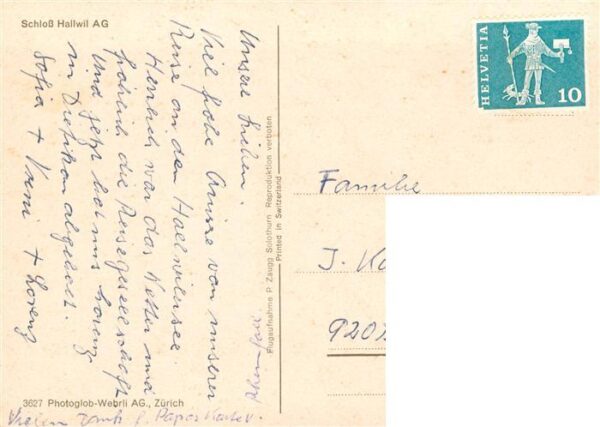 Schloß Hallwil AG
Unsere Lieben.
Viel frohe Grüsse von unserer
Reise an den Hallwilersee.
Herrlich war das Wetter und
fröhlich die Reisegesellschaft
Und jetzt hat uns Lorenz
in Dietikon abgeholt.
Sofia + Vreni + Lorenz
3627 Photoglob-Wehrli AG., Zürich
Vielen Dank f. Papas Karte.
Flugaufnahme P. Zaugg Solothurn Reproduktion verboten
Printed in Switzerland
HELVETIA
10
Familie
J.
9202